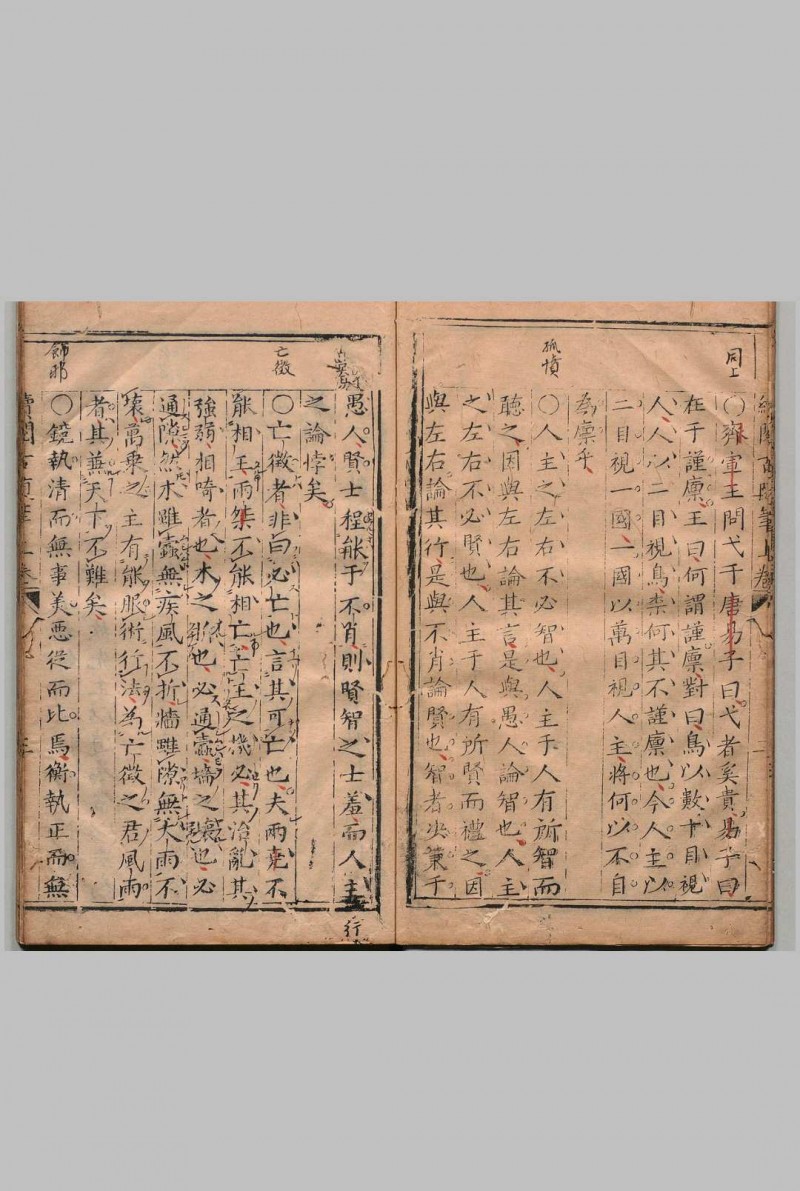 同上
○齊宣王問弋于唐易子曰弋者奚貴易子曰
在于謹廩王曰何謂謹廩對曰鳥以數十目視
人人以二目視鳥柰何其不謹廩也今人主以
二目視一國一國以萬目視人主將何以不自
為廩乎
孤憤
○人主之左右不必智也人主于人有所智而
聽之因與左右論其言是與愚人論智也人主
之左右不必賢也人主于人有所賢而禮之因
與左右論其行是與不肖論賢也智者决策于
愚人賢士程能于不肖則賢智之士羞而人主
行
之論悖矣
亡徵
○亡徵者非曰必亡也言其可亡也夫兩堯不
能相王兩桀不能相亡亡王之機必其治亂其
強弱相踦者也木之折也必通蠹墻之壞也必
通隙然木雖蠹無疾風不折墻雖隙無大雨不
壞萬乘之主有能服術行法為亡徵之君風雨
者其兼天下不難矣
飾邪
○鏡執清而無事美惡從而比焉衡執正而無